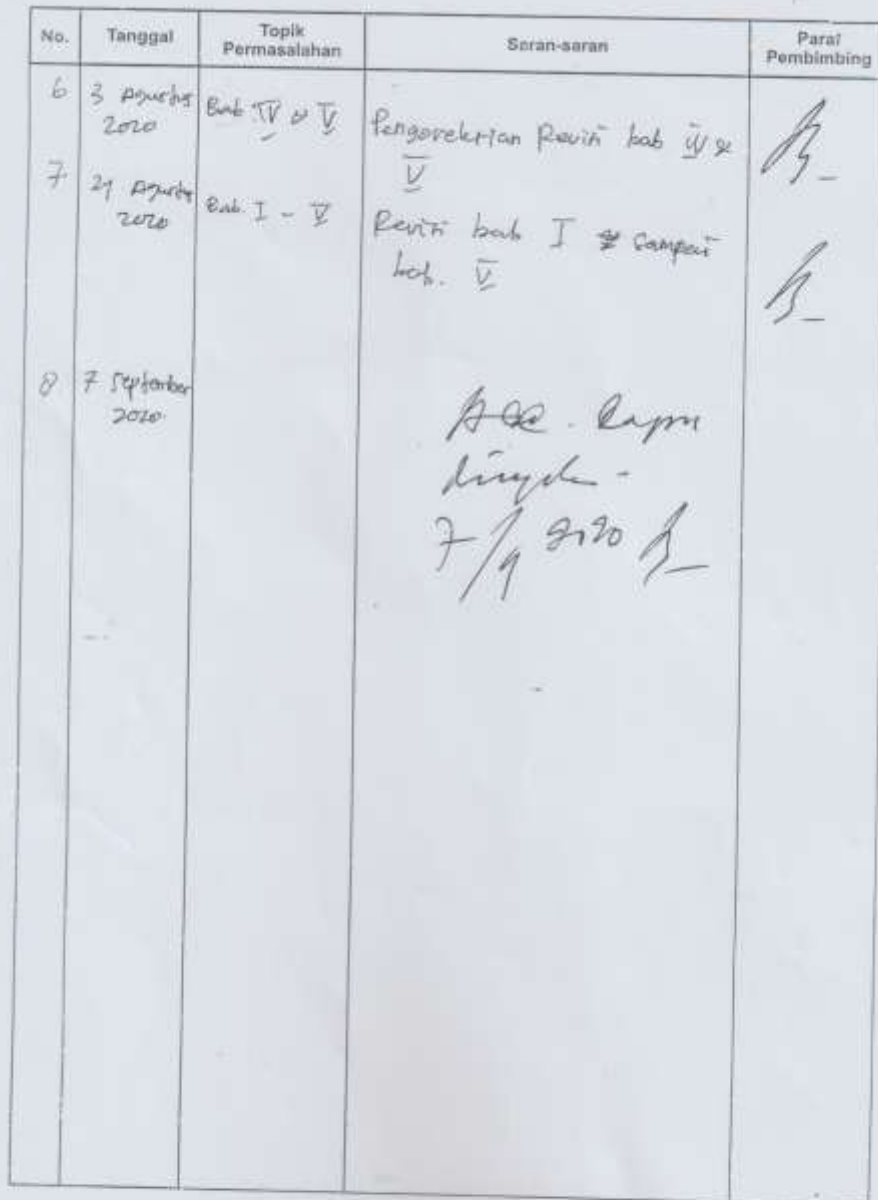 No. Tanggal Topik Permasalahan Saran-saran Paraf Pembimbing
6 3 Agustus 2020 Bab IV & V Pengoreksian Revisi bab IV &
V
7 21 Agustus 2020 Bab. I - V Revisi bab I sampai
bab. V
8 7 September 2020
Acc.
7/9 2020